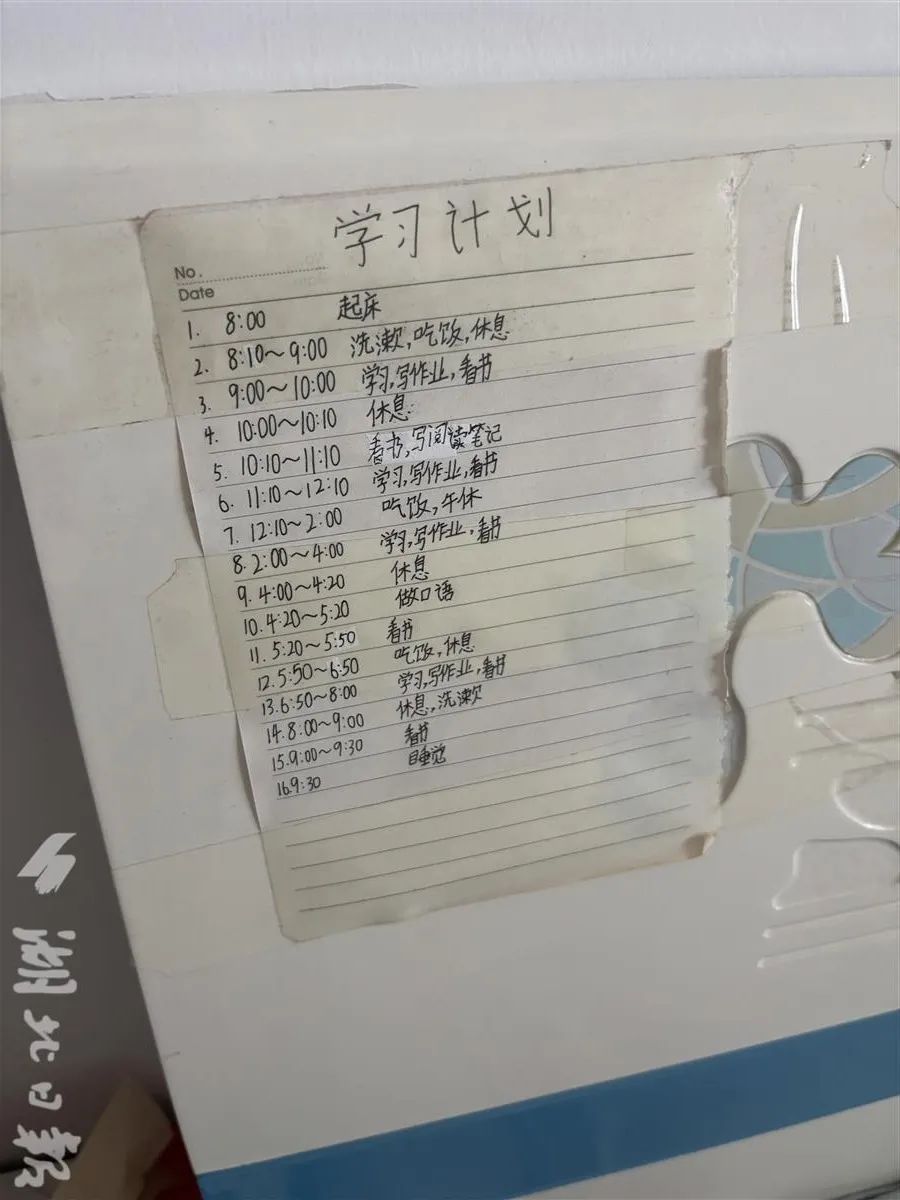 学习计划
No.
Date
1. 8:00 起床
2. 8:10~9:00 洗漱,吃饭,休息
3. 9:00~10:00 学习,写作业,看书
4. 10:00~10:10 休息
5. 10:10~11:10 看书,写阅读笔记
6. 11:10~12:10 学习,写作业,看书
7. 12:10~2:00 吃饭,午休
8. 2:00~4:00 学习,写作业,看书
9. 4:00~4:20 休息
10. 4:20~5:20 做口语
11. 5:20~5:50 看书
12. 5:50~6:50 吃饭,休息
13. 6:50~8:00 学习,写作业,看书
14. 8:00~9:00 休息,洗漱
15. 9:00~9:30 看书
16. 9:30 睡觉
湖北日报